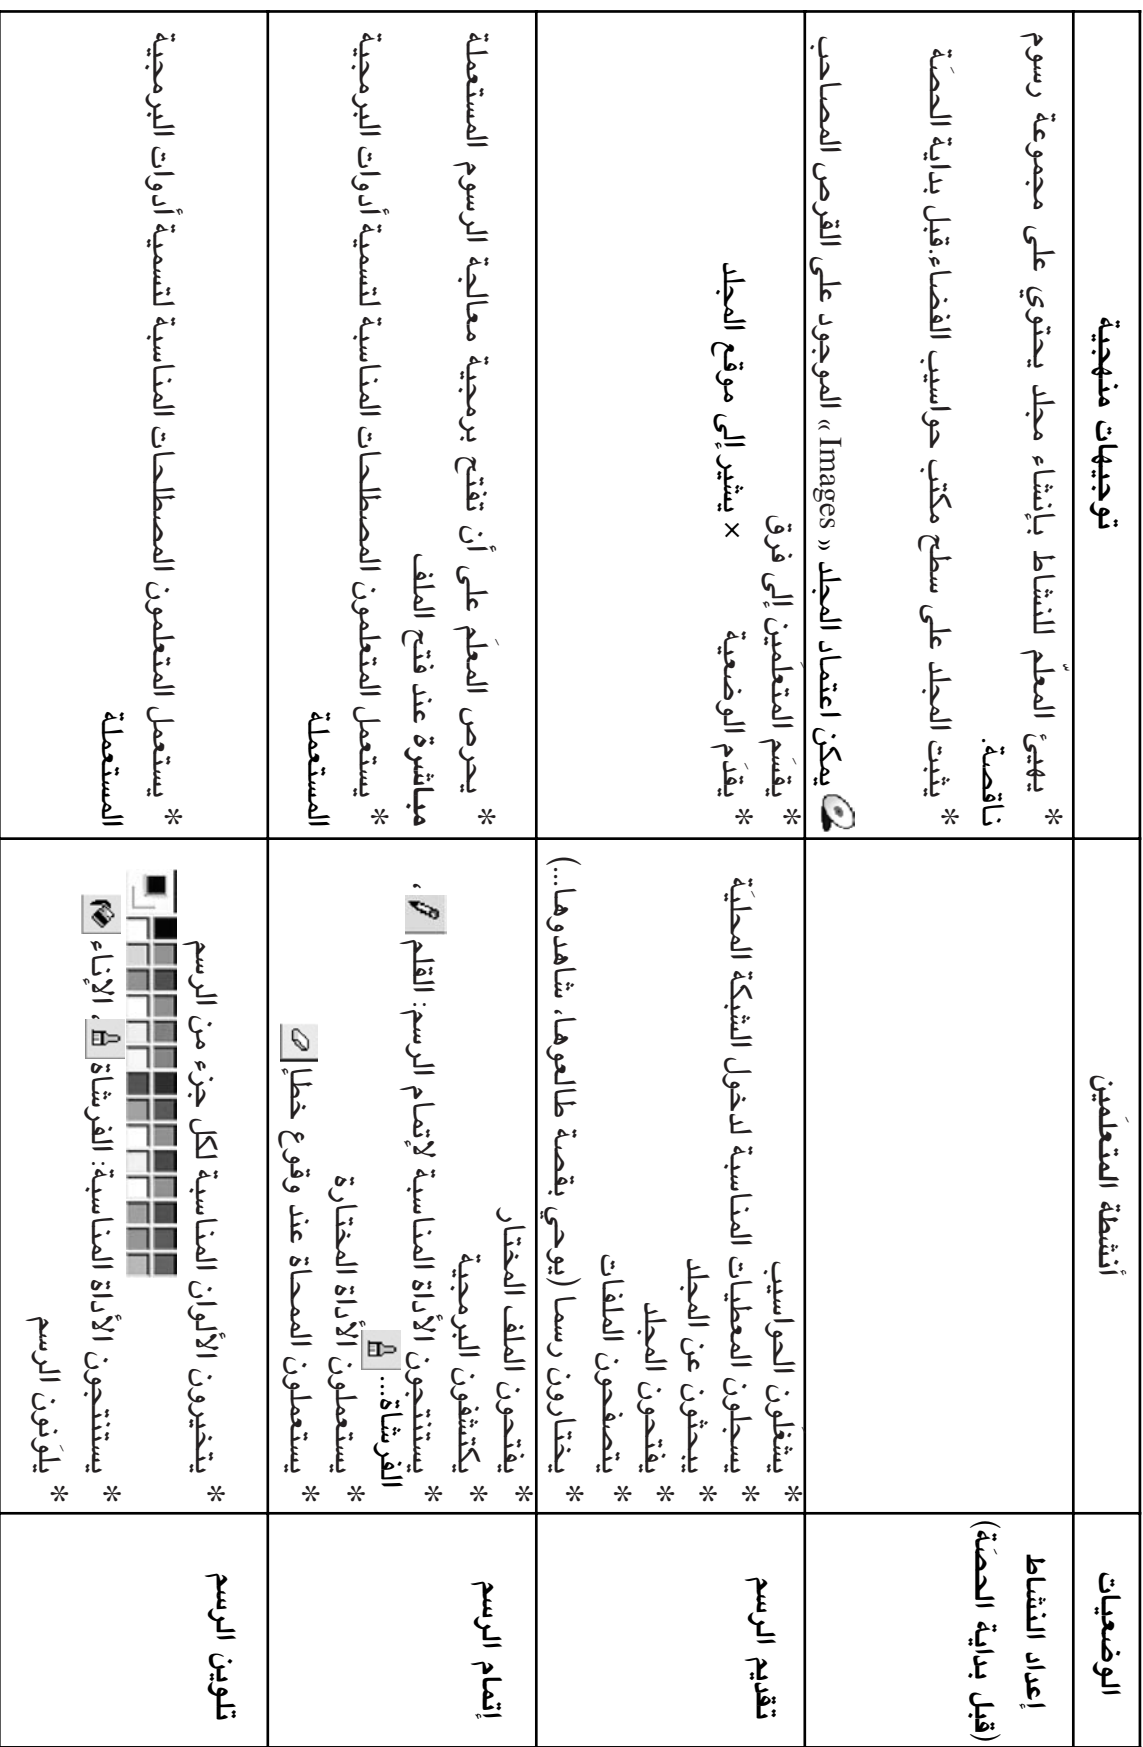 الوضعيات
أنشطة المتعلّمين
توجيهات منهجية
إعداد النشاط
(قبل بداية الحصّة)
* يهيئ المعلّم للنشاط بإنشاء مجلد يحتوي على مجموعة رسوم
ناقصة.
* يثبت المجلد على سطح مكتب حواسيب الفضاء.قبل بداية الحصّة
يمكن اعتماد المجلد « Images » الموجود على القرص المصاحب
تقديم الرسم
* يشغلون الحواسيب
* يسجلون المعطيات المناسبة لدخول الشبكة المحليّة
* يبحثون عن المجلد
* يفتحون المجلد
* يتصفحون الملفات
* يختارون رسما (يوحي بقصة طالعوها، شاهدوها...)
* يقسّم المتعلّمين إلى فرق
* يقدّم الوضعية × يشير إلى موقع المجلد
إتمام الرسم
* يفتحون الملف المختار
* يكتشفون البرمجية
* يستنتجون الأداة المناسبة لإتمام الرسم: القلم ،
الفرشاة...
* يستعملون الأداة المختارة
* يستعملون الممحاة عند وقوع خطإ
* يحرص المعلّم على أن تفتح برمجية معالجة الرسوم المستعملة
مباشرة عند فتح الملف
* يستعمل المتعلمون المصطلحات المناسبة لتسمية أدوات البرمجية
المستعملة
تلوين الرسم
* يتخيرون الألوان المناسبة لكل جزء من الرسم
* يستنتجون الأداة المناسبة: الفرشاة ، الإناء
* يلوّنون الرسم
* يستعمل المتعلمون المصطلحات المناسبة لتسمية أدوات البرمجية
المستعملة